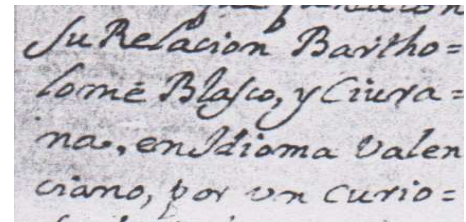 su Relacion Bartho=
lomè Blasco, y Ciura=
na, en Idioma Valen
ciano, por un Curio=